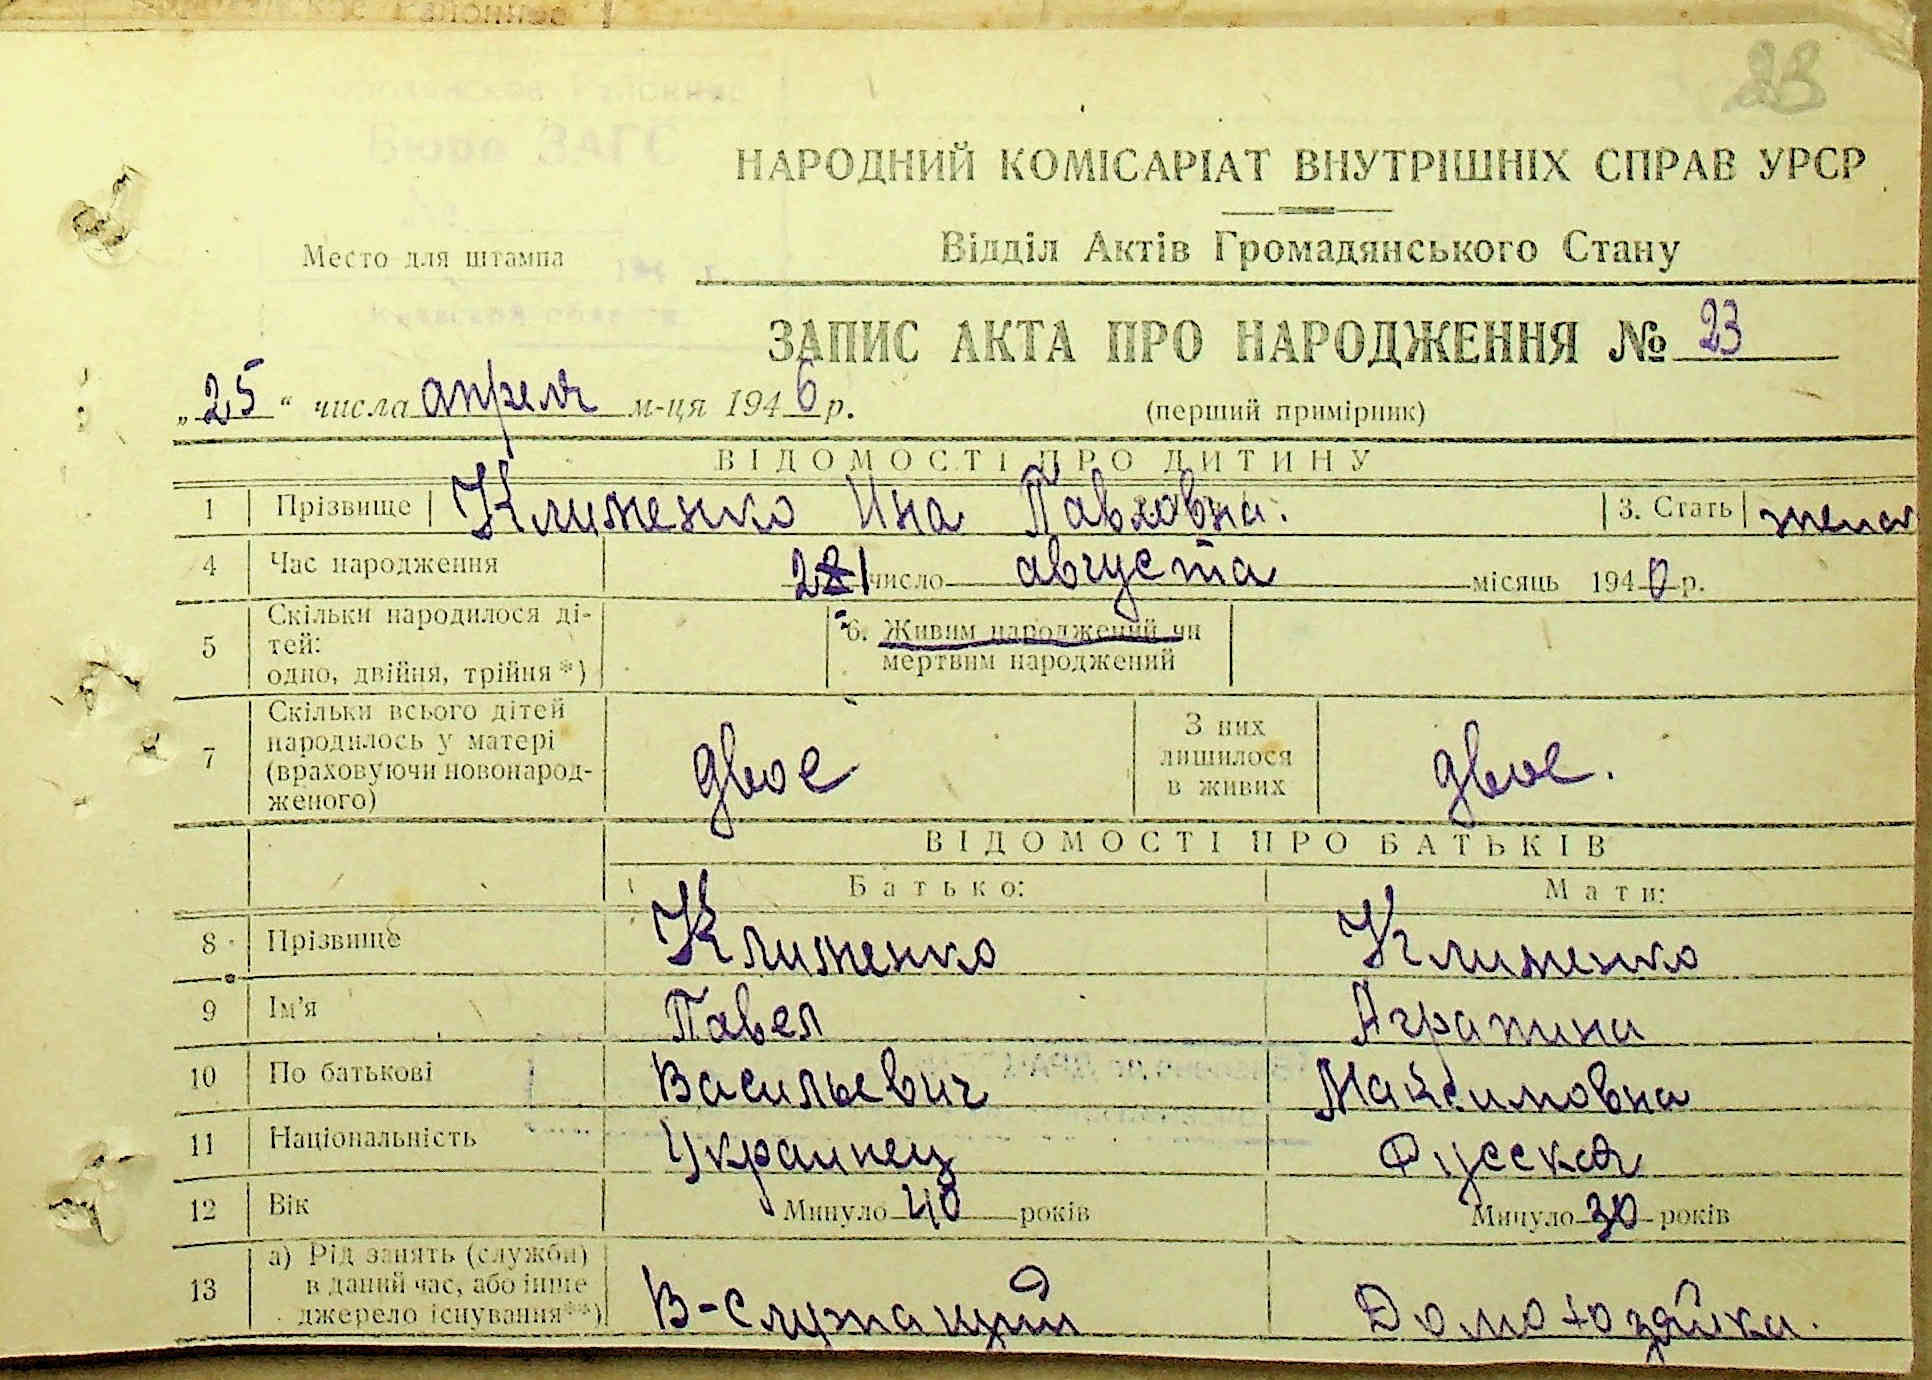 23
НАРОДНИЙ КОМІСАРІАТ ВНУТРІШНІХ СПРАВ УРСР
Відділ Актів Громадянського Стану
Место для штампа
Бюро ЗАГС
ЗАПИС АКТА ПРО НАРОДЖЕННЯ № 23
„25“ числа апреля м-ця 1946 р.
(перший примірник)
ВІДОМОСТІ ПРО ДИТИНУ
1 Прізвище Клименко Ина Павловна. 3. Стать женск
4 Час народження 21 число августа місяць 1940 р.
5 Скільки народилося ді-
тей:
одно, двійня, трійня *)
6. Живим народжений чи
мертвим народжений
7 Скільки всього дітей
народилось у матері
(враховуючи новонарод-
женого)
двое
З них
лишилося
в живих
двое.
ВІДОМОСТІ ПРО БАТЬКІВ
Батько: Мати:
8 Прізвище Клименко Клименко
9 Ім'я Павел Аграпина
10 По батькові Васильевич Максимовна
11 Національність Украинец Русская
12 Вік Минуло 40 років Минуло 30 років
13 а) Рід занять (служби)
в даний час, або інше
джерело існування**)
В-служащий Домохозяйка.